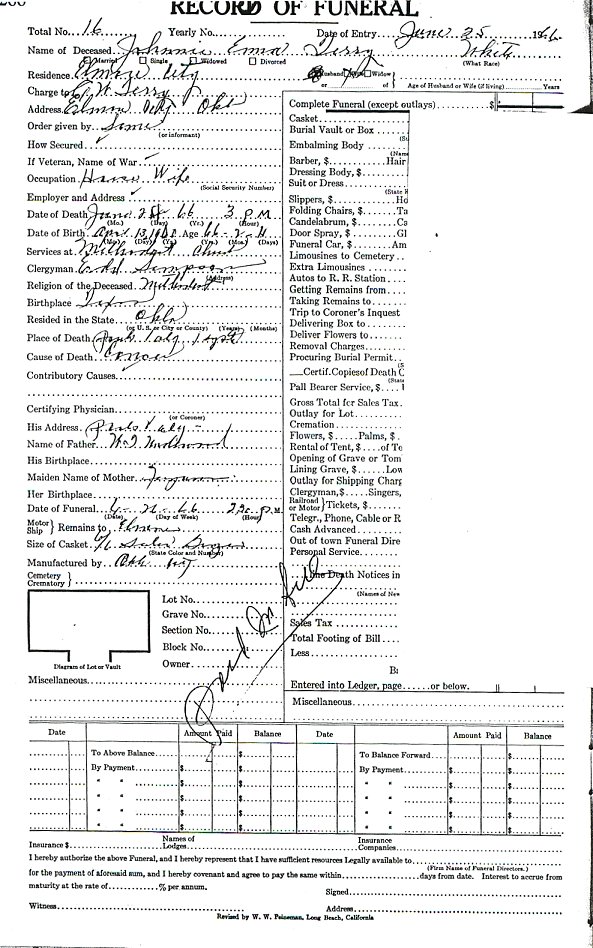 RECORD OF FUNERAL
Total No. 16 Yearly No. Date of Entry June 25 1966
Name of Deceased Johnnie Emma Terry White
Married Single Widowed Divorced (What Race)
Residence Elmore City Husband Wife Widow
or Age of Husband or Wife (if living) Years
Charge to W. Terry Jr
Complete Funeral (except outlays) $
Address Elmore City Okla
Casket
Order given by Same
(or informant)
Burial Vault or Box
How Secured
Embalming Body
If Veteran, Name of War
Barber, $ Hair
Occupation House Wife
(Social Security Number)
Dressing Body, $
Suit or Dress
Employer and Address
Slippers, $ Ho
Date of Death June 25 66 3 P.M.
(Mo.) (Day) (Yr.) (Hour)
Folding Chairs, $ Ta
Candelabrum, $ Ca
Date of Birth April 13, Age 66
(Mo.) (Day) (Yr.) (Yrs.) (Mo.) (Days)
Door Spray, $ Gl
Services at Methodist Church
Funeral Car, $ Am
(Address)
Limousines to Cemetery
Clergyman Simpson
Extra Limousines
Religion of the Deceased Methodist
Autos to R. R. Station
Getting Remains from
Birthplace Texas
Taking Remains to
Resided in the State Okla
(or U. S. or City or County) (Years) (Months)
Trip to Coroner's Inquest
Delivering Box to
Place of Death Pauls Valley Hospt
Deliver Flowers to
Removal Charges
Cause of Death Cancer
Procuring Burial Permit
Contributory Causes
Certif. Copies of Death C
Pall Bearer Service, $
Gross Total for Sales Tax
Certifying Physician
(or Coroner)
Outlay for Lot
Cremation
His Address Pauls Valley
Flowers, $ Palms, $
Name of Father Underwood
Rental of Tent, $ of Te
His Birthplace
Opening of Grave or Tom
Lining Grave, $ Low
Maiden Name of Mother Ferguson
Outlay for Shipping Charg
Her Birthplace
Clergyman, $ Singers,
Railroad or Motor Tickets, $
Date of Funeral 66 P.M.
(Date) (Day of Week) (Hour)
Telegr., Phone, Cable or R
Motor Ship Remains to Elmore
Cash Advanced
Out of town Funeral Dire
Size of Casket
(State Color and Number)
Personal Service
Manufactured by
Cemetery
Crematory
Death Notices in
(Names of New
Lot No.
Grave No.
Sales Tax
Section No.
Total Footing of Bill
Block No.
Less
Owner
Diagram of Lot or Vault
Paid In full
Miscellaneous
Entered into Ledger, page or below.
Miscellaneous
Date Amount Paid Balance Date Amount Paid Balance
To Above Balance $ To Balance Forward
By Payment $ By Payment $
" " $ " " $
" " $ " " $
" " $ " " $
" " $ " " $
Insurance $ Names of Lodges Insurance Companies
I hereby authorize the above Funeral, and I hereby represent that I have sufficient resources Legally available to
(Firm Name of Funeral Directors.)
for the payment of aforesaid sum, and I hereby covenant and agree to pay the same within days from date. Interest to accrue from
maturity at the rate of % per annum.
Signed
Witness Address
Revised by W. W. Peineman, Long Beach, California